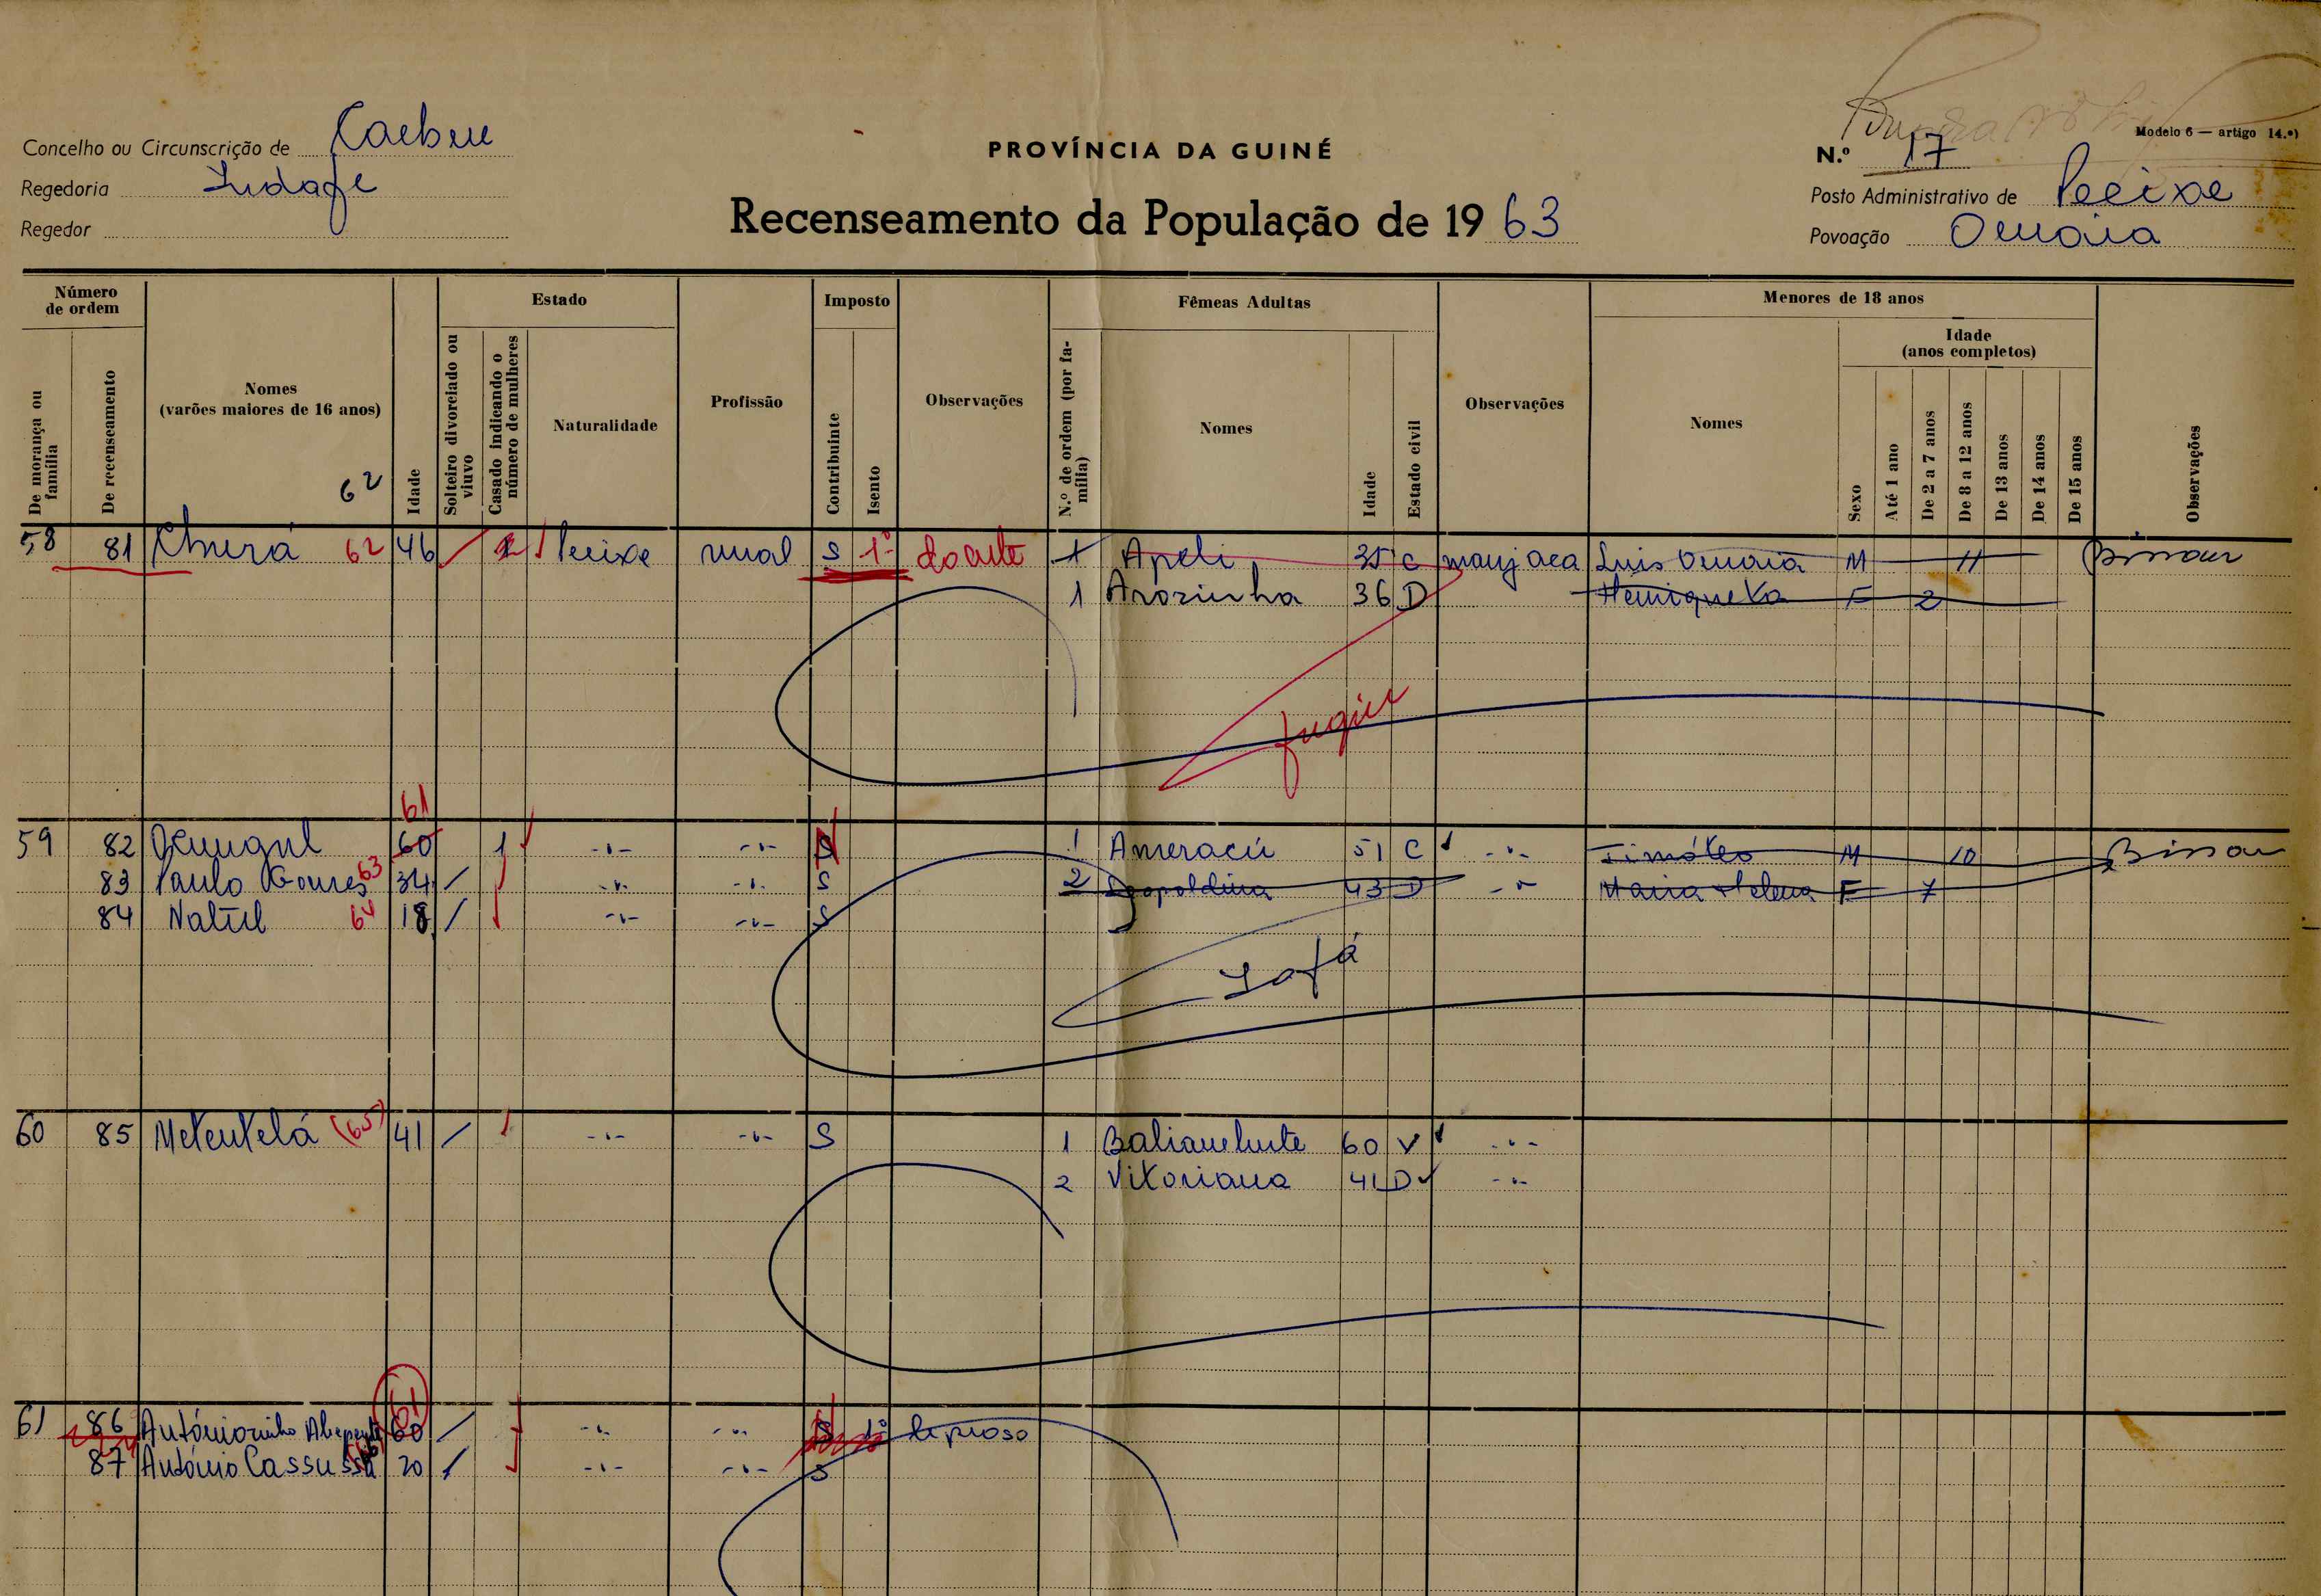 Concelho ou Circunscrição de
Regedoria
Regedor
PROVÍNCIA DA GUINÉ
Recenseamento da População de 1963
Modelo 6 — artigo 14.º)
N.º 17
Posto Administrativo de Pecixe
Povoação
Número de ordem
De morança ou família
De recenseamento
Nomes
(varões maiores de 16 anos)
62
Idade
Estado
Solteiro divorciado ou viuvo
Casado indicando o número de mulheres
Naturalidade
Profissão
Imposto
Contribuinte
Isento
Observações
Fêmeas Adultas
N.º de ordem (por família)
Nomes
Idade
Estado civil
Observações
Menores de 18 anos
Nomes
Sexo
Idade
(anos completos)
Até 1 ano
De 2 a 7 anos
De 8 a 12 anos
De 13 anos
De 14 anos
De 15 anos
Observações
58 81 Churá 62 46 Pecixe rural S 1º doente 1 Apeli 35 C manjaca Luis M 11 Bissau
1 Arozinha 36 D Henriqueta F 2
fugiu
61
59 82 60 1 -"- -"- S 1 Ameracú 51 C -"- Timóteo M 10 Bissau
83 Paulo Gomes 63 34 / -"- -"- S 2 Leopoldina 43 D -"- Maria Helena F 7
84 Natul 64 18 / -"- -"- S
60 85 Metentelá (65) 41 / -"- -"- S 1 60 V -"-
2 Vitoriana 41 D -"-
61
61 86 Antóniozinho 60 / -"- -"- S 1º leproso
87 António Cassussá 20 / -"- -"- S